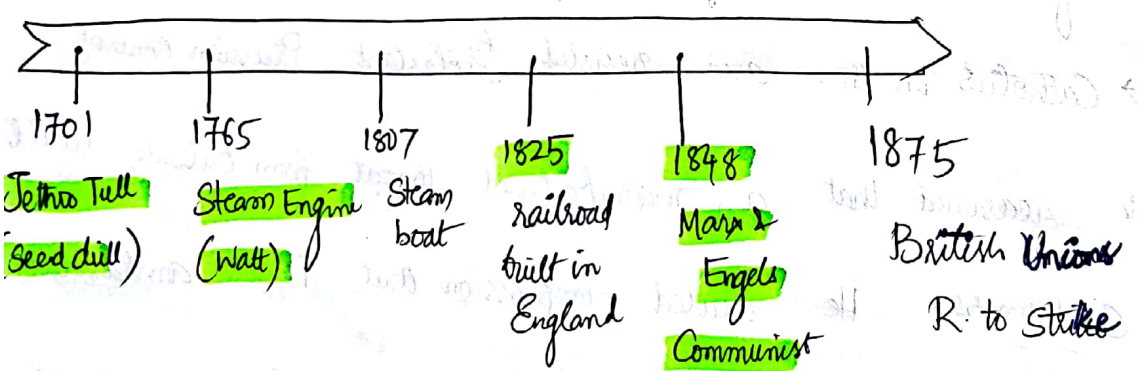 1701
Jethro Tull
(Seed drill)
1765
Steam Engine
(Watt)
1807
Steam
boat
1825
railroad
built in
England
1848
Marx &
Engels
Communist
1875
British Unions
R. to Strike